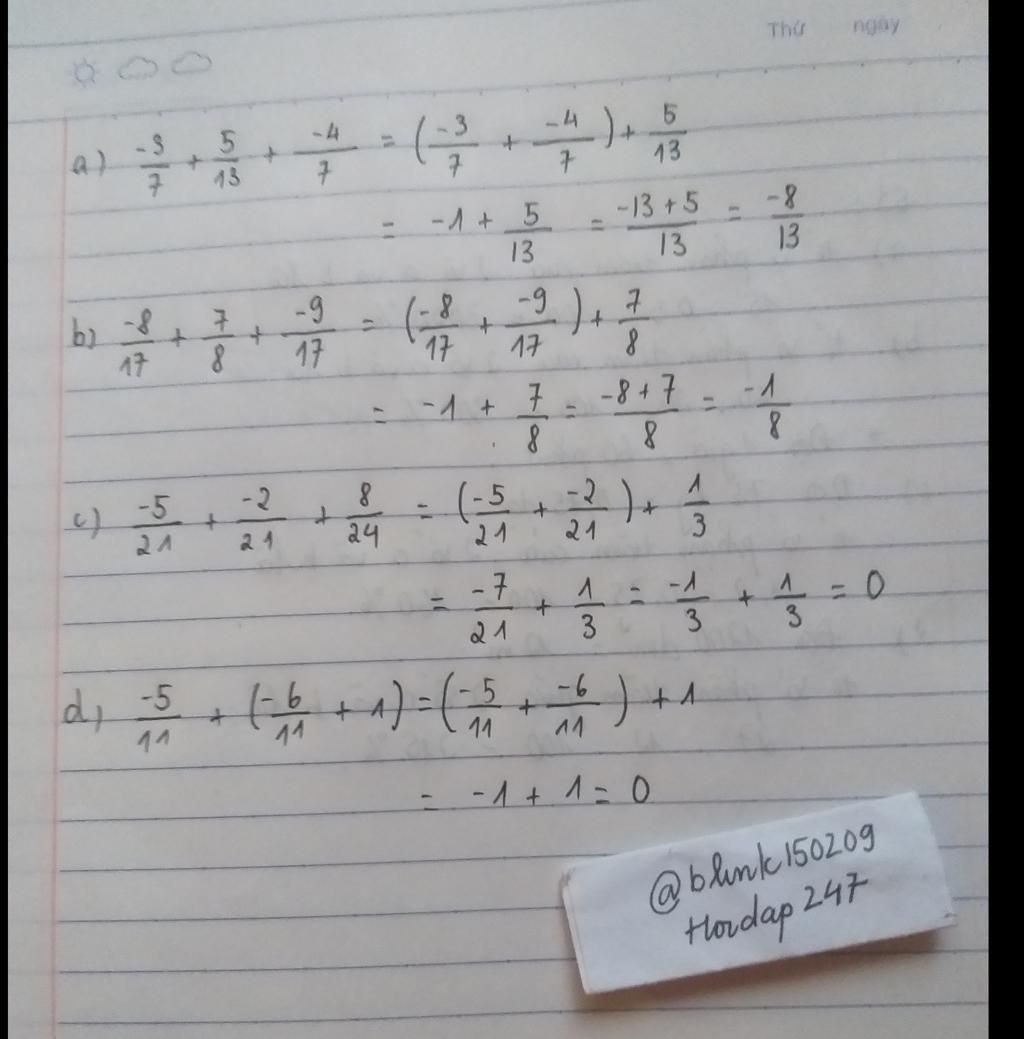 Thứ ngày
a) -3/7 + 5/13 + -4/7 = (-3/7 + -4/7) + 5/13
= -1 + 5/13 = -13+5/13 = -8/13
b) -8/17 + 7/8 + -9/17 = (-8/17 + -9/17) + 7/8
= -1 + 7/8 = -8+7/8 = -1/8
c) -5/21 + -2/21 + 8/24 = (-5/21 + -2/21) + 1/3
= -7/21 + 1/3 = -1/3 + 1/3 = 0
d) -5/11 + (-6/11 + 1) = (-5/11 + -6/11) + 1
= -1 + 1 = 0
@blink150209
Hoidap 247